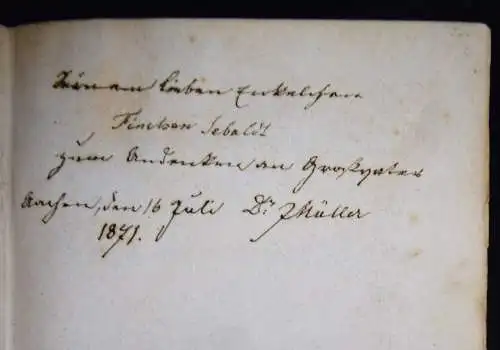 Seinem lieben Enkelchen
Finchen Sebaldt
zum Andenken an Großvater
Aachen, den 16 Juli Dr. J Müller
1871.